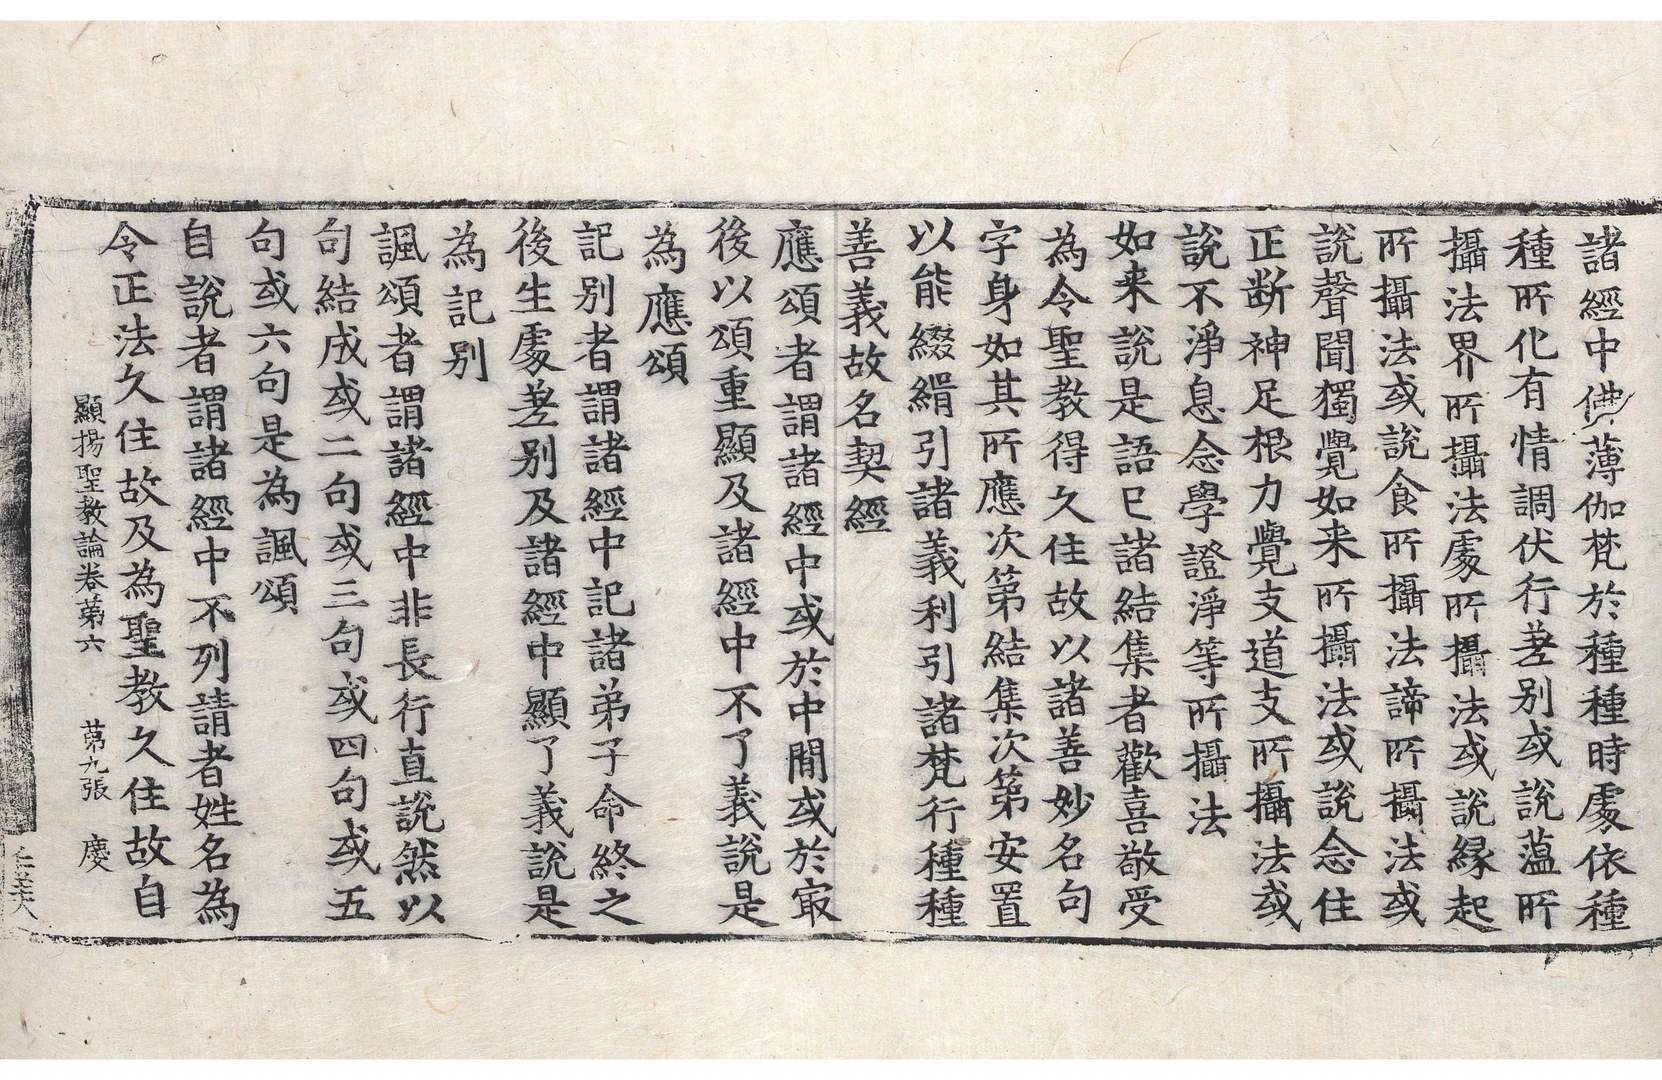 諸經中佛薄伽梵於種種時處依種
種所化有情調伏行差別或說蕰所
攝法界所攝法處所攝法或說緣起
所攝法或說食所攝法諦所攝法或
說聲聞獨覺如来所攝法或說念住
正断神足根力覺支道支所攝法或
說不淨息念學證淨等所攝法
如来說是語已諸結集者歡喜敬受
為令聖教得久住故以諸善妙名句
字身如其所應次第結集次第安置
以能綴緝引諸義利引諸梵行種種
善義故名契經
應頌者謂諸經中或於中間或於㝡
後以頌重顯及諸經中不了義說是
為應頌
記別者謂諸經中記諸弟子命終之
後生處差別及諸經中顯了義說是
為記別
諷頌者謂諸經中非長行直說然以
句結成或二句或三句或四句或五
句或六句是為諷頌
自說者謂諸經中不列請者姓名為
令正法久住故及為聖教久住故自
顯揚聖教論卷苐六 苐九張 慶